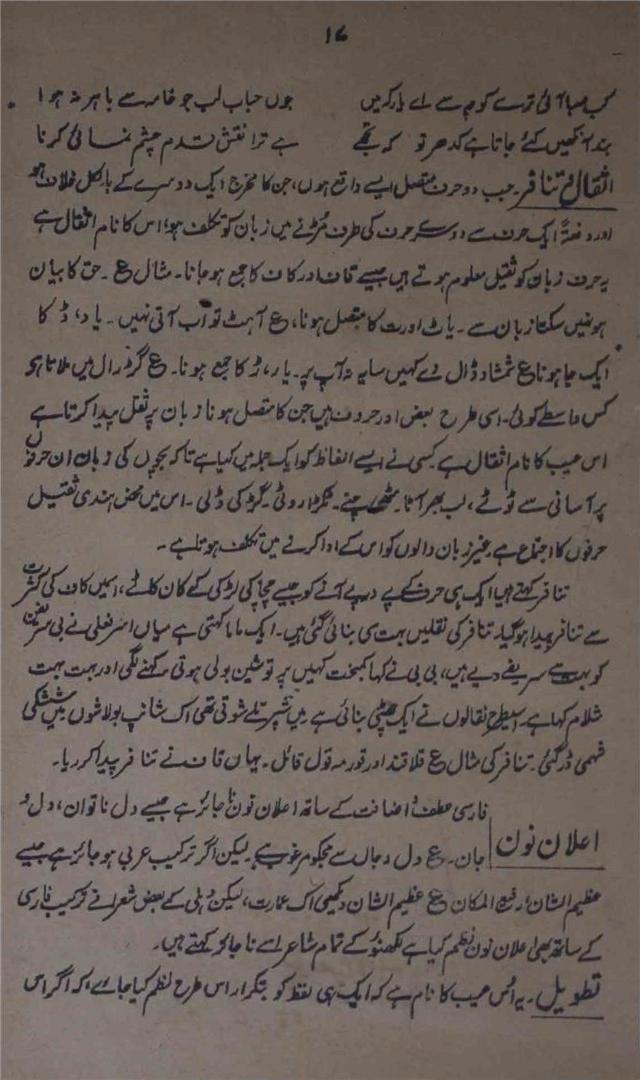 ۱۷
کب صبا آئی ترے کوچہ سے اے یار کہ میں جوں حباب لب جو خانہ سے باہر نہ ہوا
بند آنکھیں کئے جاتا ہے کدھر تو کہ تجھے ہے ترا نقش قدم چشم نمائی کرنا
اثقال و تنافر۔ جب دو حرف متصل ایسے واقع ہوں، جن کا مخرج ایک دوسرے کے بالکل خلاف ہو
اور دفعتہً ایک حرف سے دوسرے حرف کی طرف مڑنے میں زبان کو تکلف ہو؛ اس کا نام اثقال ہے
یہ حرف زبان کو ثقیل معلوم ہوتے ہیں جیسے قاف اور کاف کا جمع ہو جانا۔ مثال ع۔ حق کا بیان
ہو نہیں سکتا زبان سے۔ یا ٹ اور ت کا متصل ہونا، ع آہٹ تو اب آتی نہیں۔ یا د، ڈ کا
ایک جا ہونا ع شمشاد ڈال دے کہیں سایہ نہ آپ پر۔ یا ر، ڑ کا جمع ہونا۔ ع گڑ رال میں ملاتا ہے
کس واسطے کوئی۔ اسی طرح بعض اور حروف ہیں جن کا متصل ہونا زبان پر ثقل پیدا کرتا ہے
اس عیب کا نام اثقال ہے کسی نے ایسے الفاظ کو ایک جملہ میں کیا ہے تاکہ بچوں کی زبان ان حرفوں
پر آسانی سے ٹوٹے، لب بھر آٹا۔ مٹھی چنے۔ ٹکڑا روٹی۔ گڑ کی ڈلی۔ اس میں محض ہندی ثقیل
حرفوں کا اجتماع ہے غیر زبان والوں کو اس کے ادا کرنے میں تکلف ہوتا ہے۔
تنافر کہتے ہیں ایک ہی حرف کے پے در پے آنے کو جیسے چچا کی لڑکی کے کان کاٹے، اسمیں کاف کی کثرت
سے تنافر پیدا ہو گیا۔ تنافر کی نقلیں بہت سی بنائی گئی ہیں۔ ایک ماما کہتی ہے میاں اشرفعلی نے بی شریفن
کو بہت سے سریفے دیے ہیں، بی بی نے کہا کمبخت کہیں پر تو شین بولی ہوتی۔ کہنے لگی اور بہت بہت
شلام کہا ہے۔ اسیطرح نقالوں نے ایک بنائی ہے میں تلے شوتی تھی اک شانپ بولا شوں میں ششکی
شہمی ڈر گئی۔ تنافر کی مثال ع قلاقند اور قورمہ قول قائل۔ یہاں قاف نے تنافر پیدا کر دیا۔
اعلان نون فارسی عطف و اضافت کے ساتھ اعلان نون نا جائز ہے جیسے دل ناتوان، دل و
جان۔ ع دل و جاں سے مجکو مرغوب ہے۔ لیکن اگر ترکیب عربی ہو جائز ہے جیسے
عظیم الشان، رفیع المکان ع عظیم الشان دیکھی اک عمارت، لیکن دہلی کے بعض شعرا نے ترکیب فارسی
کے ساتھ بھی اعلان نون نظم کیا ہے لکھنؤ کے تمام شاعر اسے نا جائز کہتے ہیں۔
تطویل۔ یہ اُس عیب کا نام ہے کہ ایک ہی لفظ کو بتکرار اس طرح نظم کیا جائے کہ اگر اس